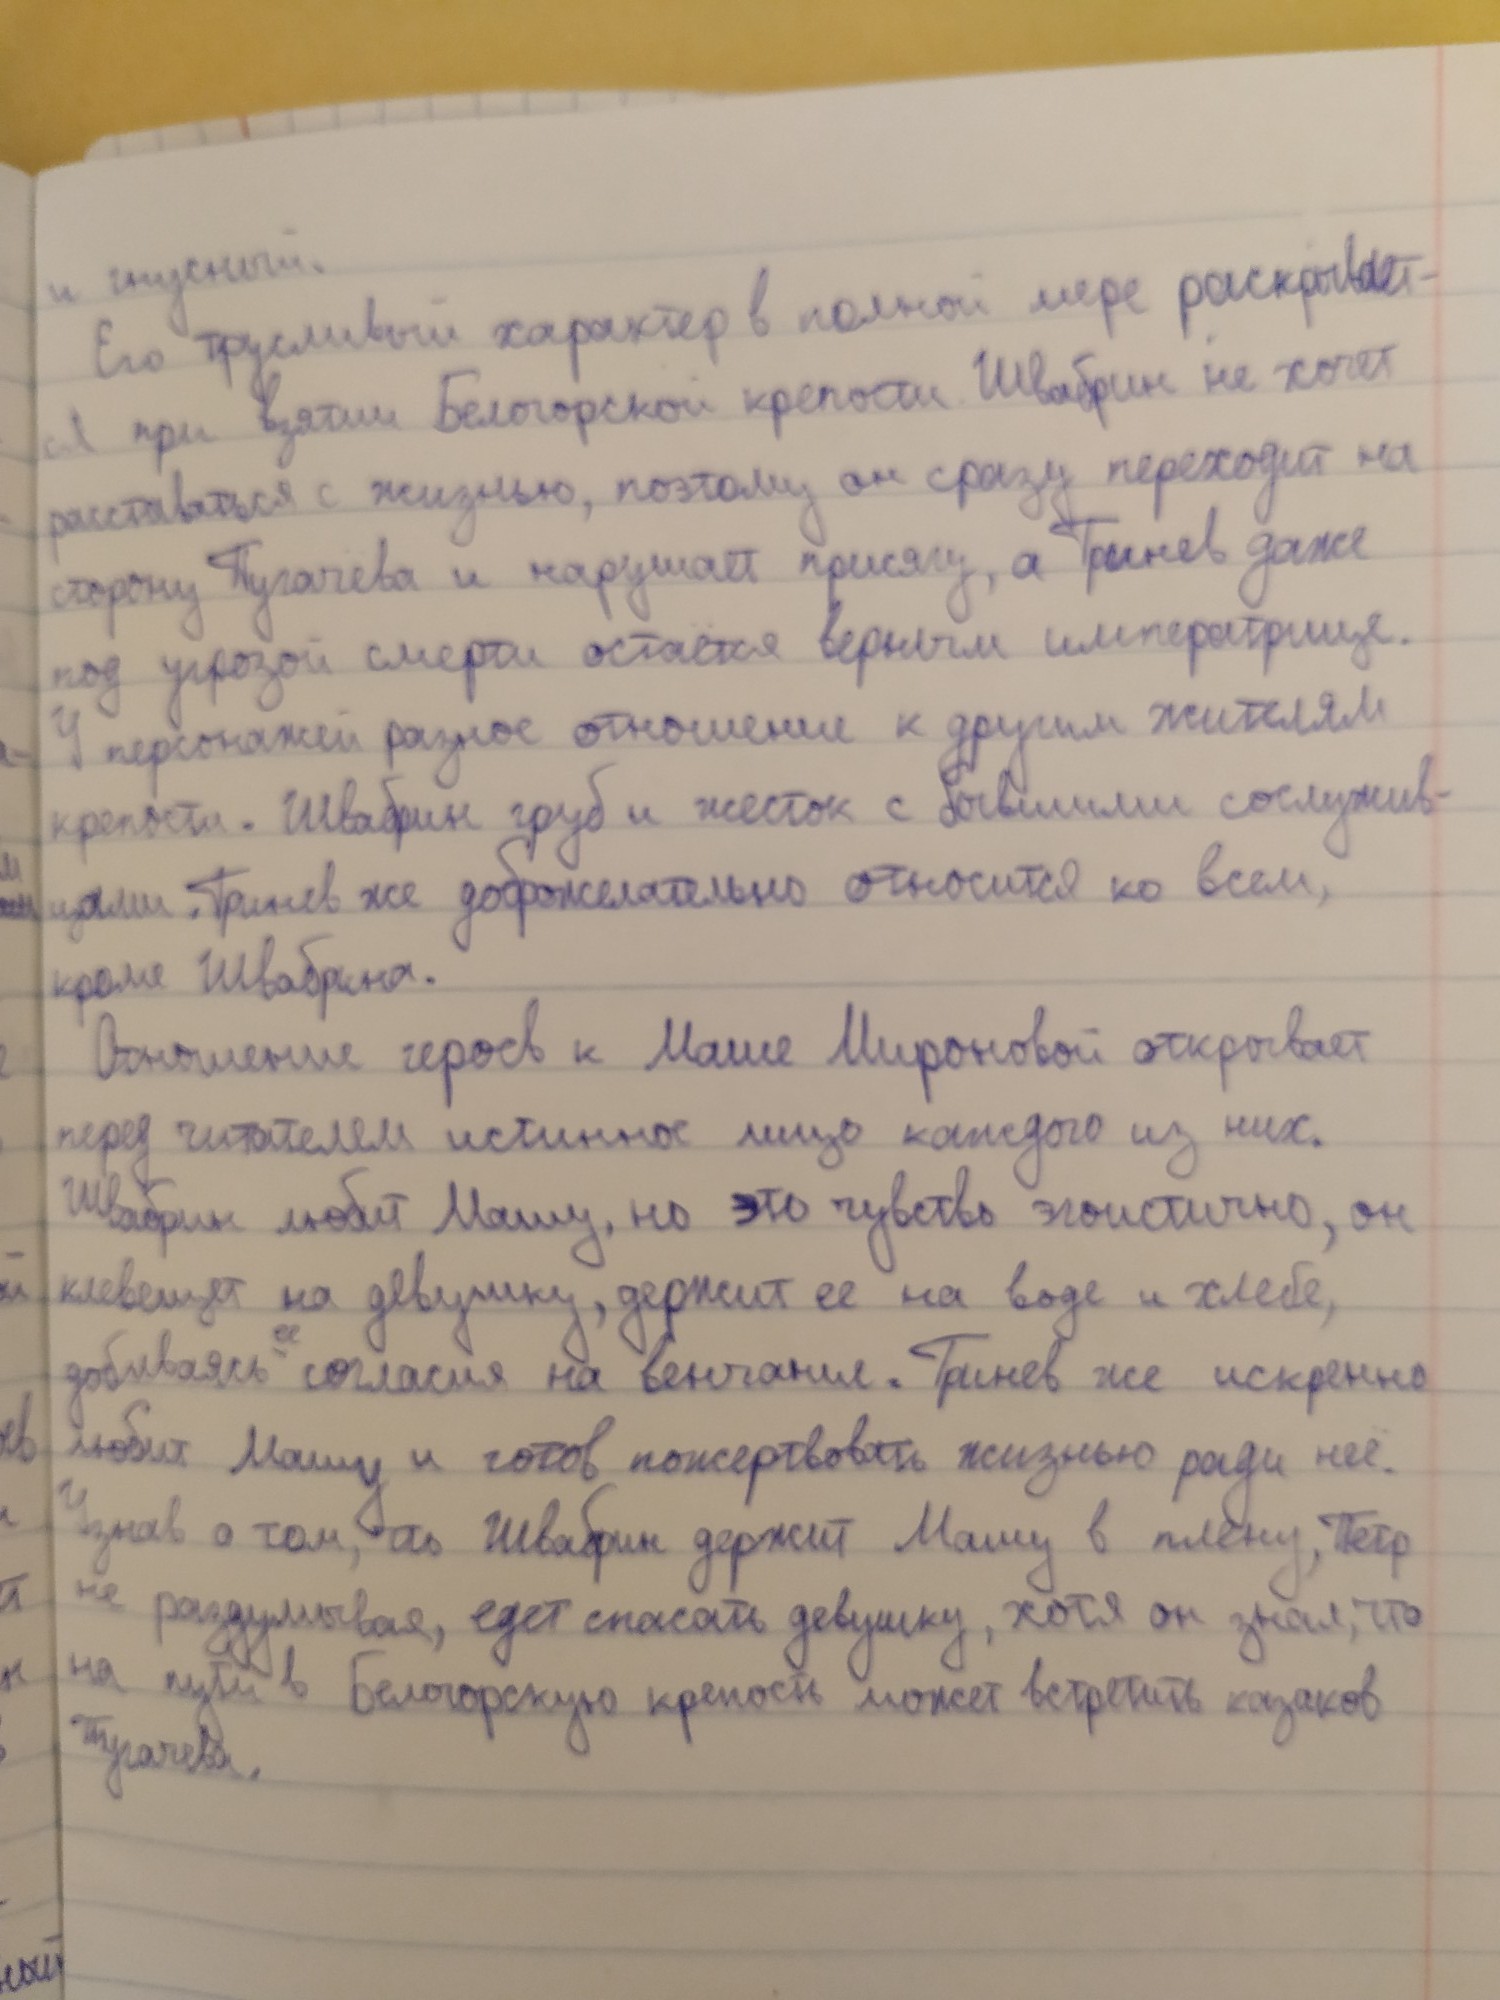 и гнусный.
Его трусливый характер в полной мере раскрывает-
ся при взятии Белогорской крепости. Швабрин не хочет
расставаться с жизнью, поэтому он сразу переходит на
сторону Пугачёва и нарушает присягу, а Гринев даже
под угрозой смерти остаётся верным императрице.
У персонажей разное отношение к другим жителям
крепости. Швабрин груб и жесток с бывшими сослужив-
цами. Гринев же доброжелательно относится ко всем,
кроме Швабрина.
Отношение героев к Маше Мироновой открывает
перед читателем истинное лицо каждого из них.
Швабрин любит Машу, но это чувство эгоистично, он
клевещет на девушку, держит ее на воде и хлебе,
добиваясь ее согласия на венчание. Гринев же искренно
любит Машу и готов пожертвовать жизнью ради неё.
Узнав о том, что Швабрин держит Машу в плену, Петр
не раздумывая, едет спасать девушку, хотя он знал, что
на пути в Белогорскую крепость может встретить казаков
Пугачёва.